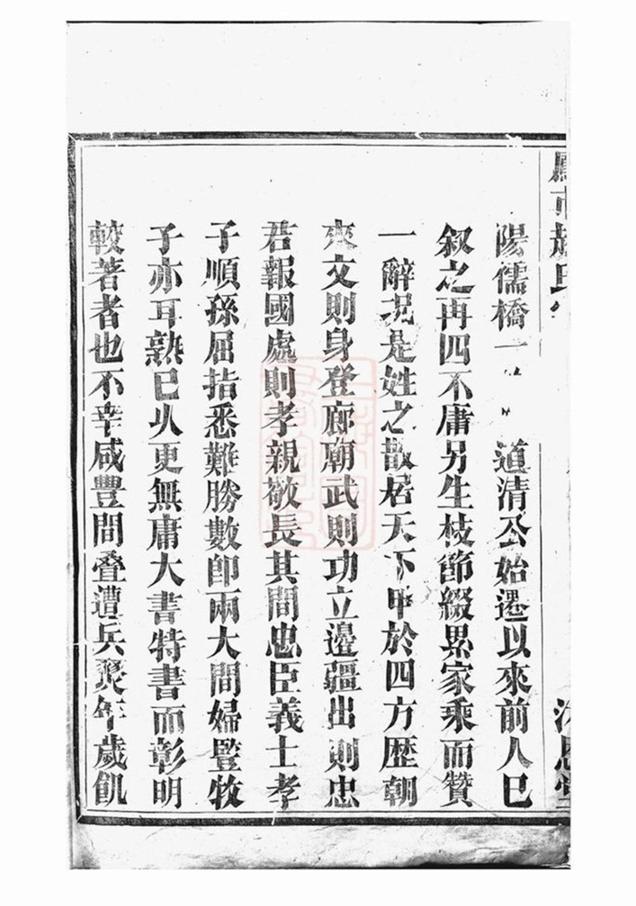 陽儒橋一 道清公始遷以來前人已
叙之再四不庸另生枝節綴累家乘而贊
一辭况是姓之散居天下甲於四方歷朝
來文則身登廊廟武則功立邊疆出則忠
君報國處則孝親敬長其間忠臣義士孝
子順孫屈指悉難勝數即兩大間婦豎牧
子亦耳熟已久更無庸大書特書而彰明
較著者也不幸咸豐間叠遭兵燹年歲飢